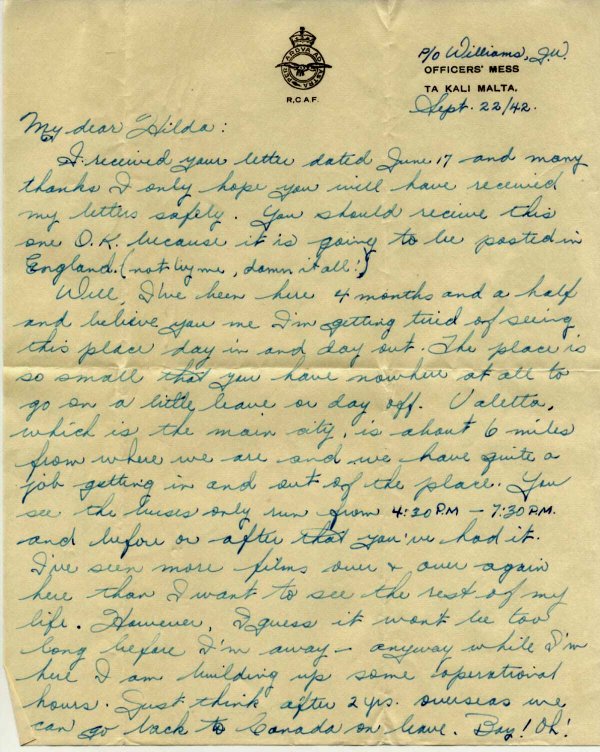 PER ARDUA AD ASTRA
R.C.A.F.
P/O Williams, J.W.
OFFICERS' MESS
TA KALI MALTA.
Sept. 22/42.
My dear Hilda:
I received your letter dated June 17 and many
thanks I only hope you will have received
my letters safely. You should recieve this
one O.K. because it is going to be posted in
England. (not by me, damn it all!)
Well, I've been here 4 months and a half
and believe you me I'm getting tired of seeing
this place day in and day out. The place is
so small that you have nowhere at all to
go on a little leave or day off. Valetta,
which is the main city, is about 6 miles
from where we are and we have quite a
job getting in and out of the place. You
see the buses only run from 4:30 P.M - 7:30 P.M.
and before or after that you've had it.
I've seen more films over + over again
here than I want to see the rest of my
life. However, I guess it wont be too
long before I'm away - anyway while I'm
here I am building up some operational
hours. Just think after 2 yrs. overseas we
can go back to Canada on leave. Boy! Oh!